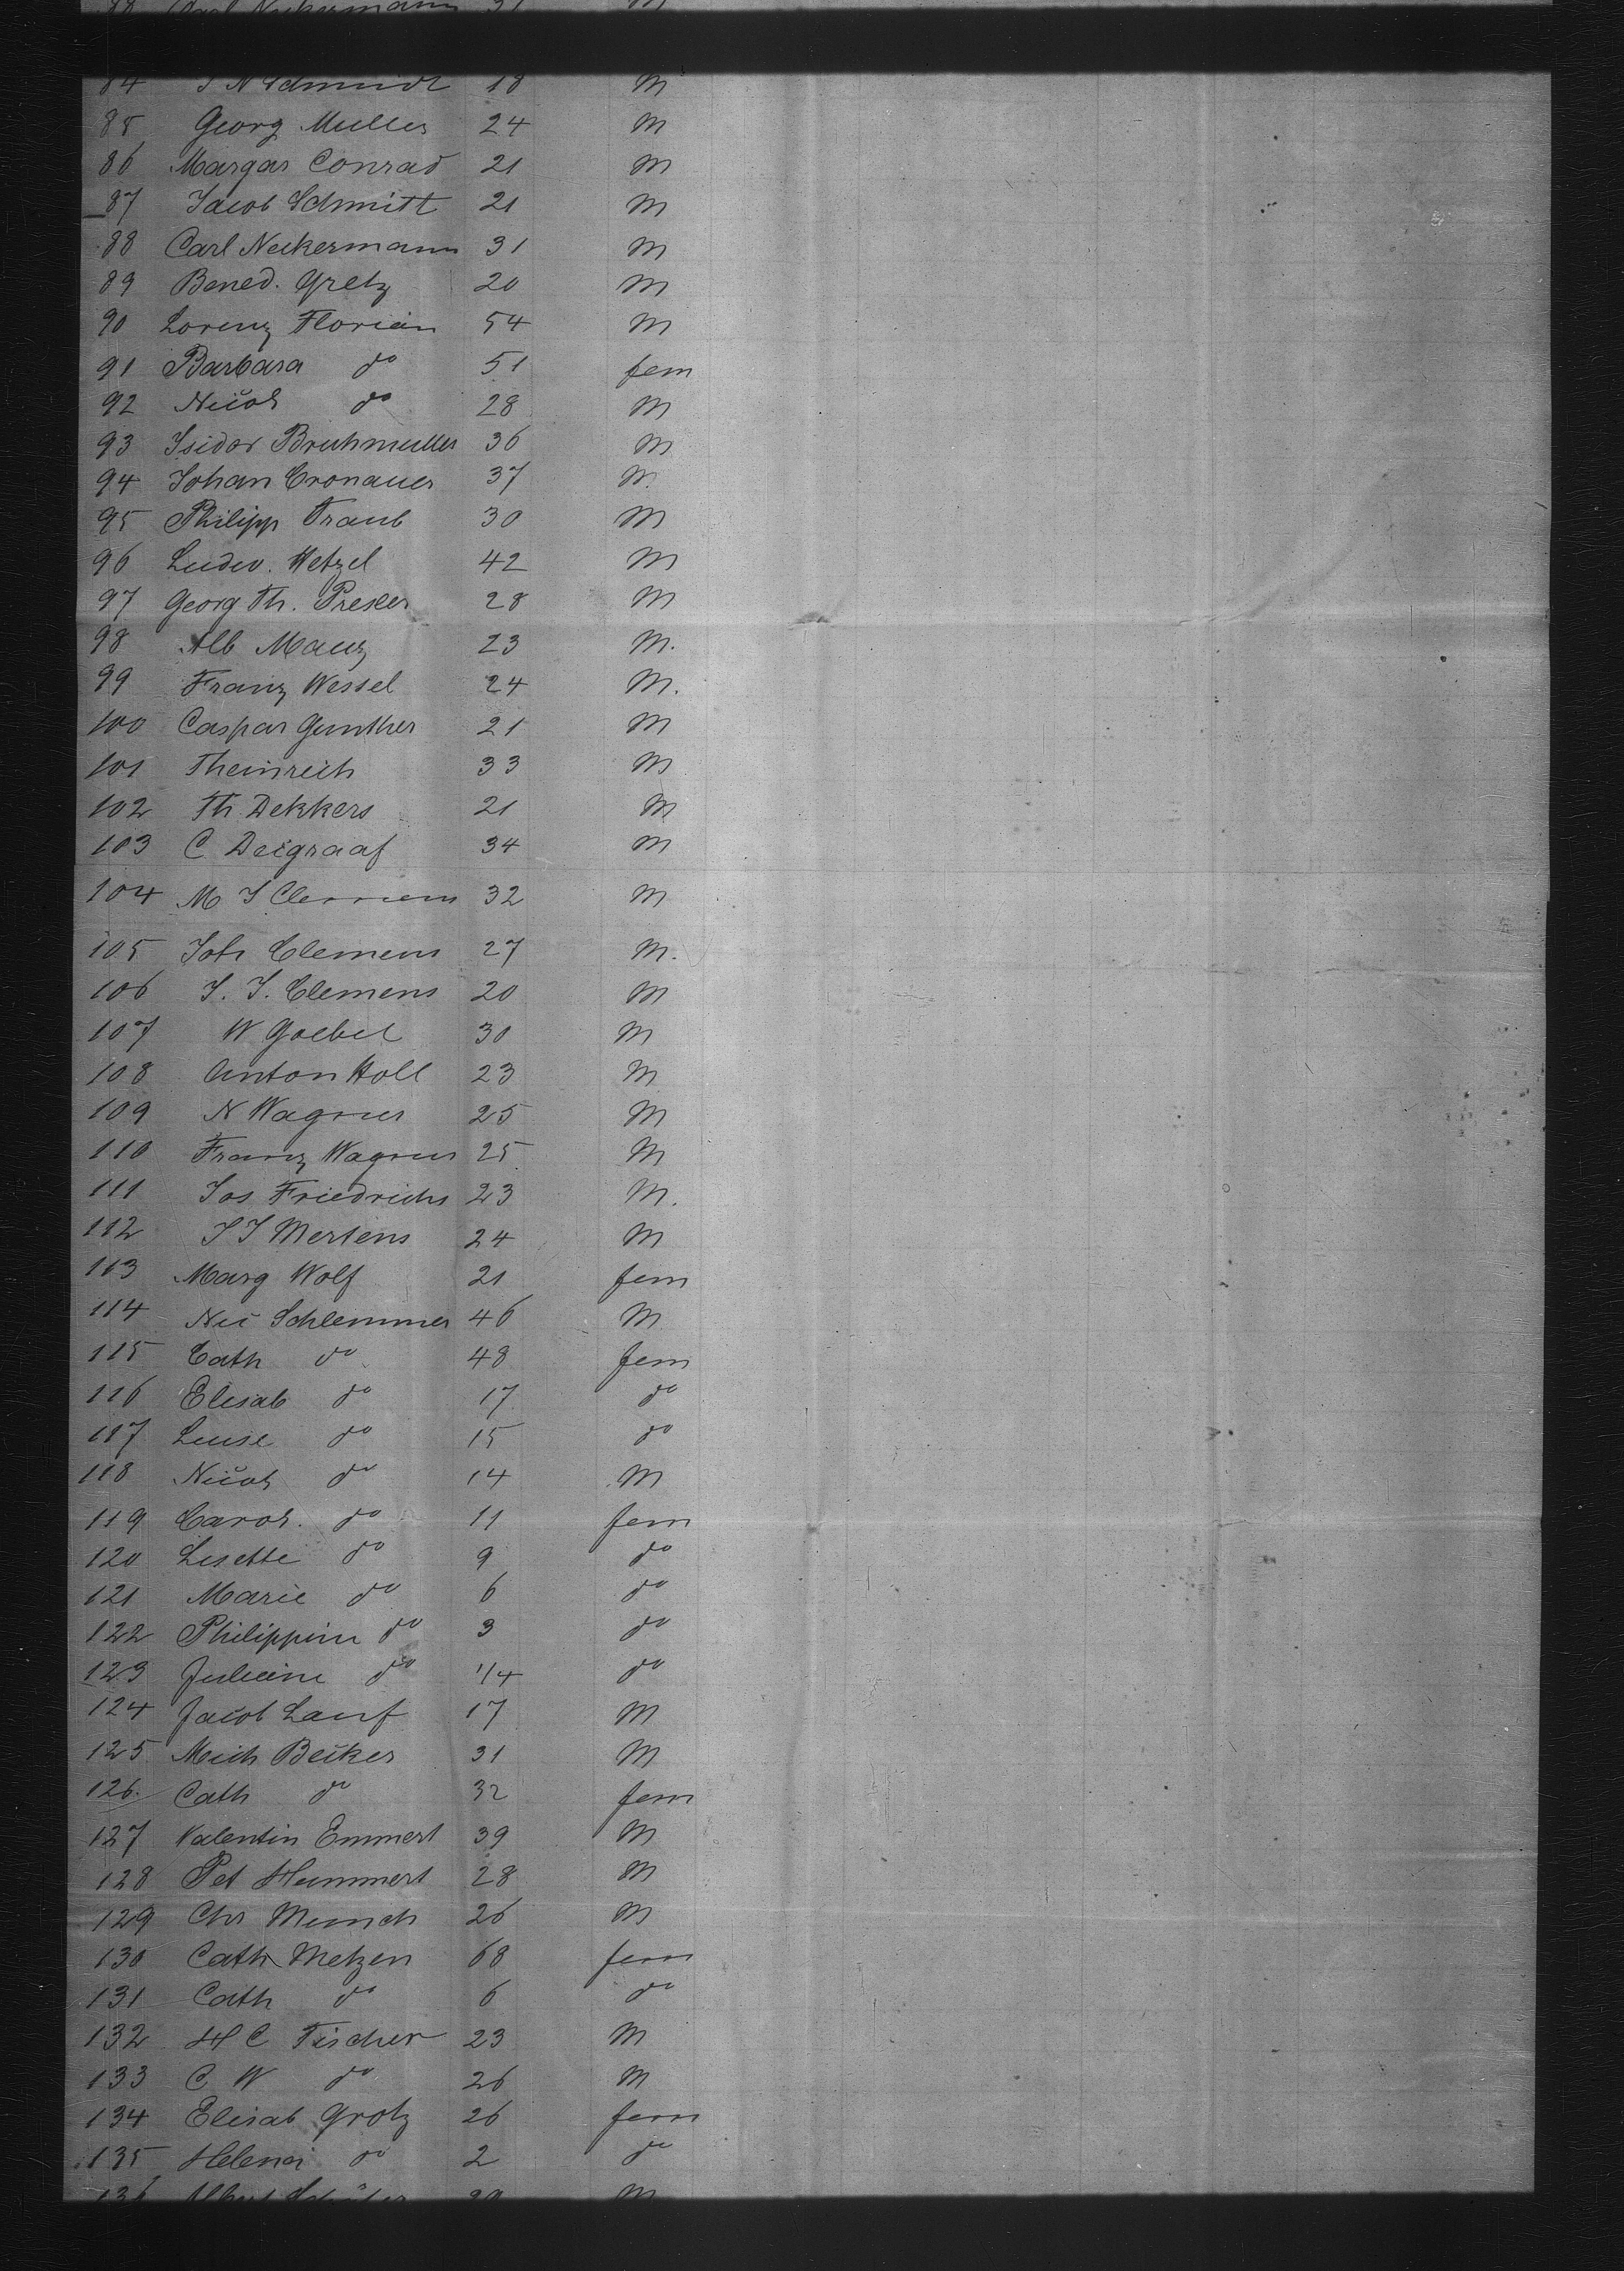 88 Carl Neckermann 31 M
84 J N Schmidt 18 M
85 Georg Muller 24 M
86 Margar Conrad 21 M
87 Jacob Schmitt 21 M
88 Carl Neckermann 31 M
89 Bened. Gretz 20 M
90 Lorenz Florian 54 M
91 Barbara do 51 fem
92 Nicol do 28 M
93 Isidor Bruhmuller 36 M
94 Johan Cronauer 37 M
95 Philipp Traub 30 M
96 Ludw. Wetzel 42 M
97 Georg Th. Presker 28 M
98 Alb Mauz 23 M.
99 Franz Wessel 24 M.
100 Caspar Gunther 21 M
101 Theinrich 33 M
102 Th Dekkers 21 M
103 C Deigraaf 34 M
104 M J Clemens 32 M
105 Joh Clemens 27 M.
106 J. J. Clemens 20 M
107 W Goebel 30 M
108 Anton Holl 23 M
109 N Wagner 25 M
110 Franz Wagner 25 M
111 Jos Friedrichs 23 M.
112 J J Mertens 24 M
113 Marg Wolf 21 fem
114 Nic Schlemmer 46 M
115 Cath do 48 fem
116 Elisab do 17 do
117 Luise do 15 do
118 Nicol do 14 M
119 Carol. do 11 fem
120 Lisette do 9 do
121 Marie do 6 do
122 Philippine do 3 do
123 Juliane do 1/4 do
124 Jacob Lauf 17 M
125 Mich Becker 31 M
126. Cath do 32 fem
127 Valentin Emmert 39 M
128 Pet Hummert 28 M
129 Chr Munch 26 M
130 Cath Metzen 68 fem
131 Cath do 6 do
132 H C Fischer 23 M
133 C W do 26 M
134 Elisab Grotz 26 fem
135 Helena do 2 do
136 Albert 29 M